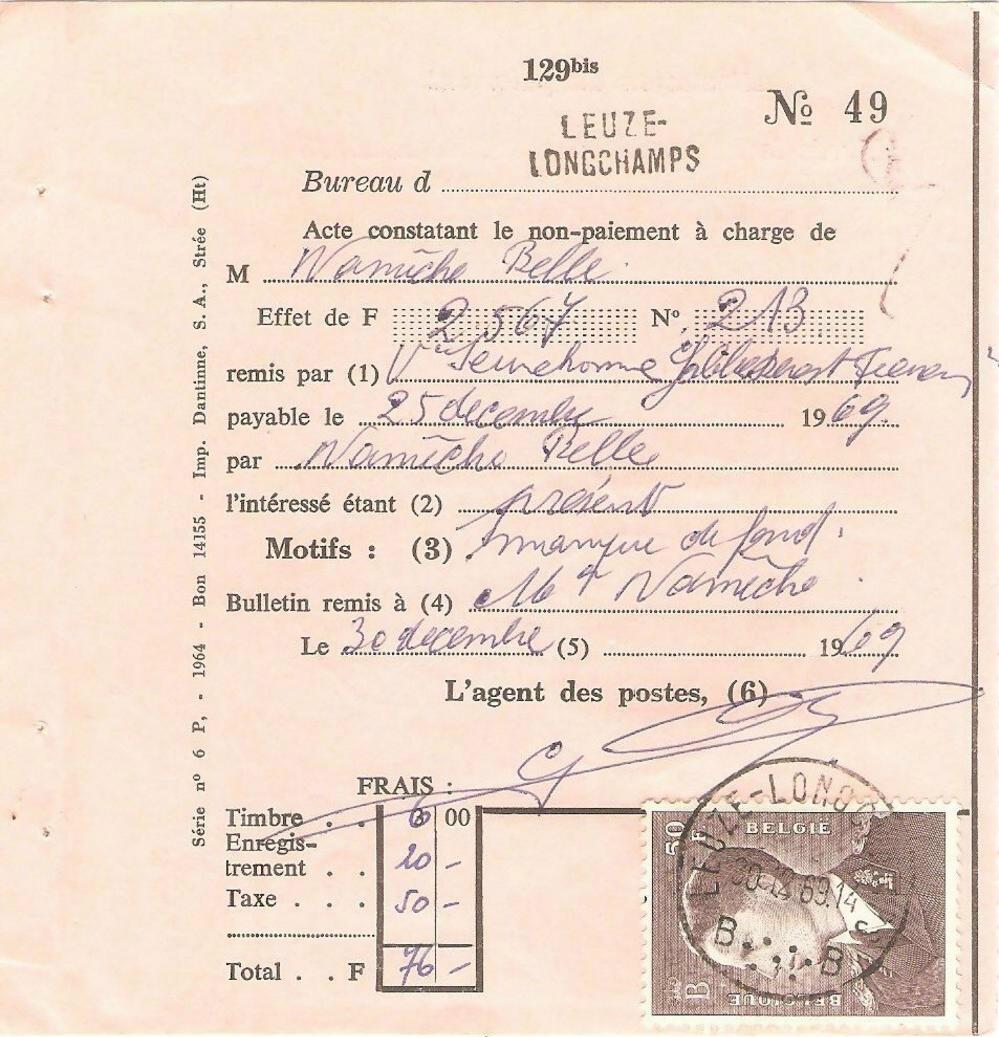 129bis
No 49
LEUZE-
LONGCHAMPS
Bureau d
Acte constatant le non-paiement à charge de
M Namèche Belle
Effet de F 2 567 No 213
remis par (1) Vve Jeunehomme
payable le 25 decembre 1969.
par Namèche Belle
l'intéressé étant (2) présent
Motifs : (3) manque de fond.
Bulletin remis à (4) Me Namèche
Le 30 decembre (5) 1969
L'agent des postes, (6)
FRAIS :
Timbre . . 6 00
Enregis-
trement . . 20 -
Taxe . . . 50 -
Total . . F 76 -
Série no 6 P, - 1964 - Bon 14155 - Imp. Dantinne, S. A., Strée (Ht)
50 F
BELGIË
BELGIQUE
LEUZE-LONGCHAMPS
30.12.69.14
B B